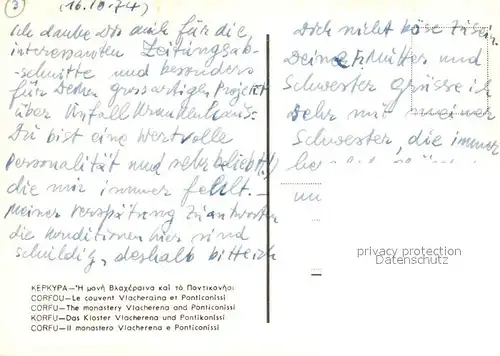 3
(16.10.74)
Ich danke Dir auch für die,
interessanten Zeitungsab-
schnitte und besonders
für Deinen grossartigen Projekt
über Unfall Krankenhaus.
Du bist eine wertvolle
personalität und sehr beliebt!)
die mir immer fehlt. –
meiner verspätung zu antworten
die Konditionen hier sind
schuldig, deshalb bitte ich
Dich nicht böse zu sein.
Deine Mutter und
Schwester grüsse ich
sehr mit meiner
Schwester, die immer
privacy protection
Datenschutz
ΚΕΡΚΥΡΑ—Ἡ μονὴ Βλαχέραινα καὶ τὸ Ποντικονήσι
CORFOU—Le couvent Vlacheraina et Ponticonissi
CORFU—The monastery Vlacherena and Ponticonissi
KORFU—Das Kloster Vlacherena und Pontikonissi
CORFU—Il monastero Vlacherena e Ponticonissi